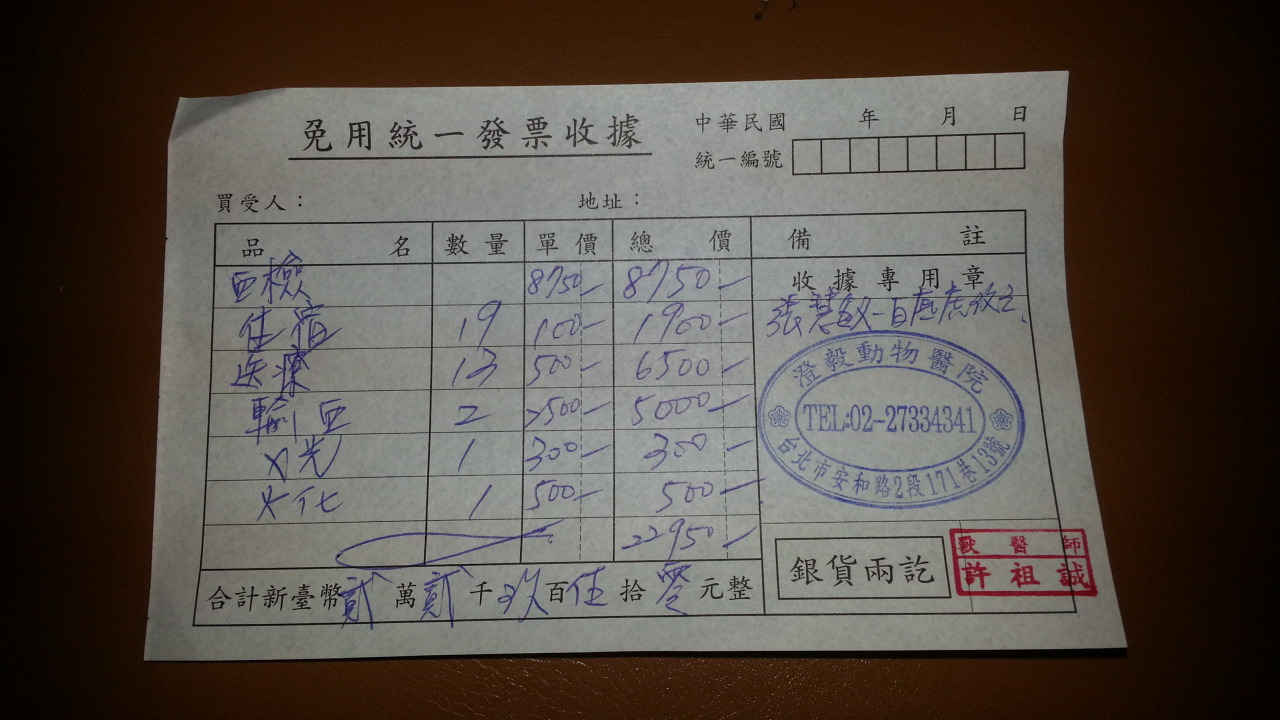 免用統一發票收據
中華民國 年 月 日
統一編號
買受人： 地址：
品名 數量 單價 總價 備註
血檢 8750- 8750-
收據專用章
住宿 19 100- 1900-
張慧敏-
医療 13 500- 6500-
輸血 2 2500- 5000-
X光 1 300- 300-
火化 1 500- 500-
22950-
澄毅動物醫院
TEL:02-27334341
台北市安和路2段171巷13號
合計新臺幣貳萬貳千玖百伍拾零元整
銀貨兩訖
獸醫師
許祖誠